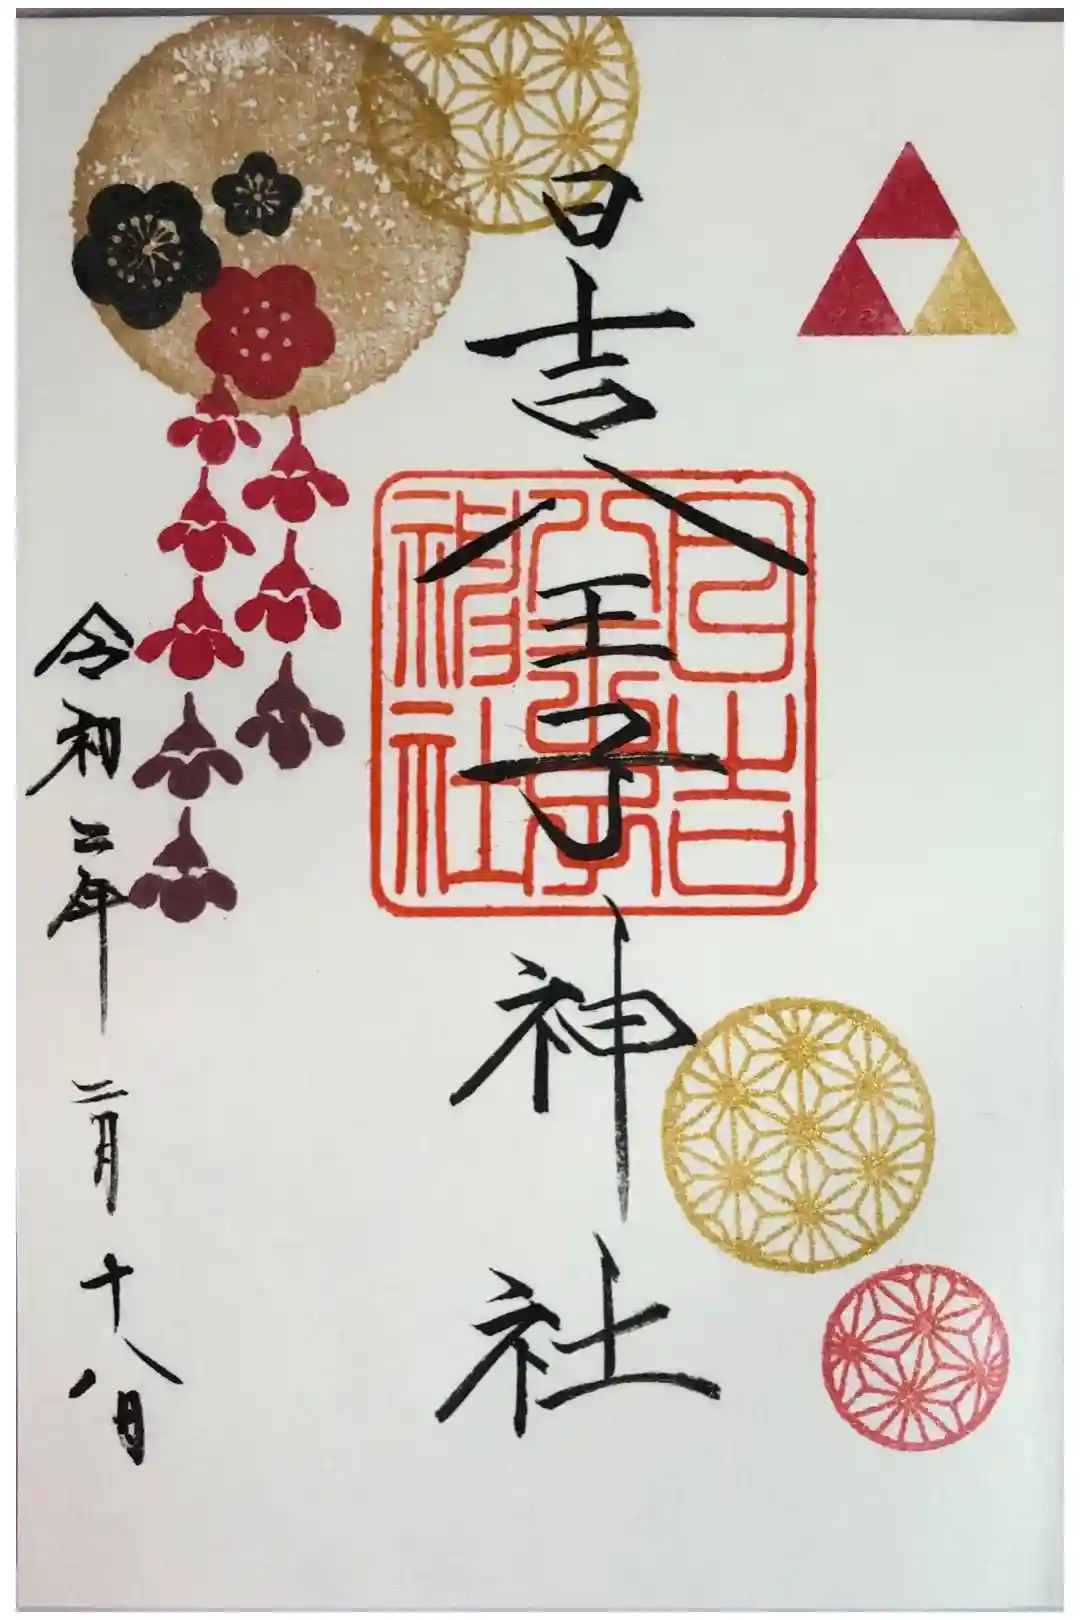 日吉八王子神社
日吉
八王子
神社
令和二年 二月 十八日